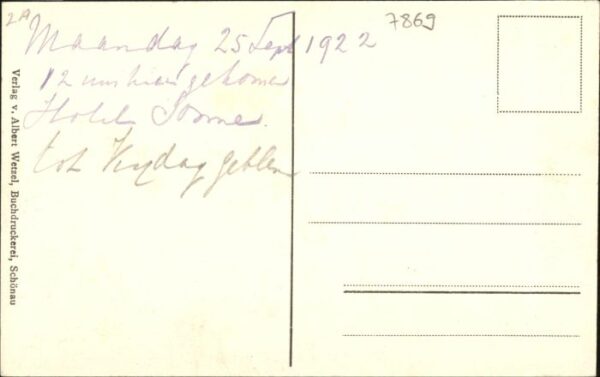 2A
7869
Maandag 25 Sept 1922
12 uur hier gekomen
Hotel Sonne.
tot Vrydag gebleven
Verlag v. Albert Wetzel, Buchdruckerei, Schönau